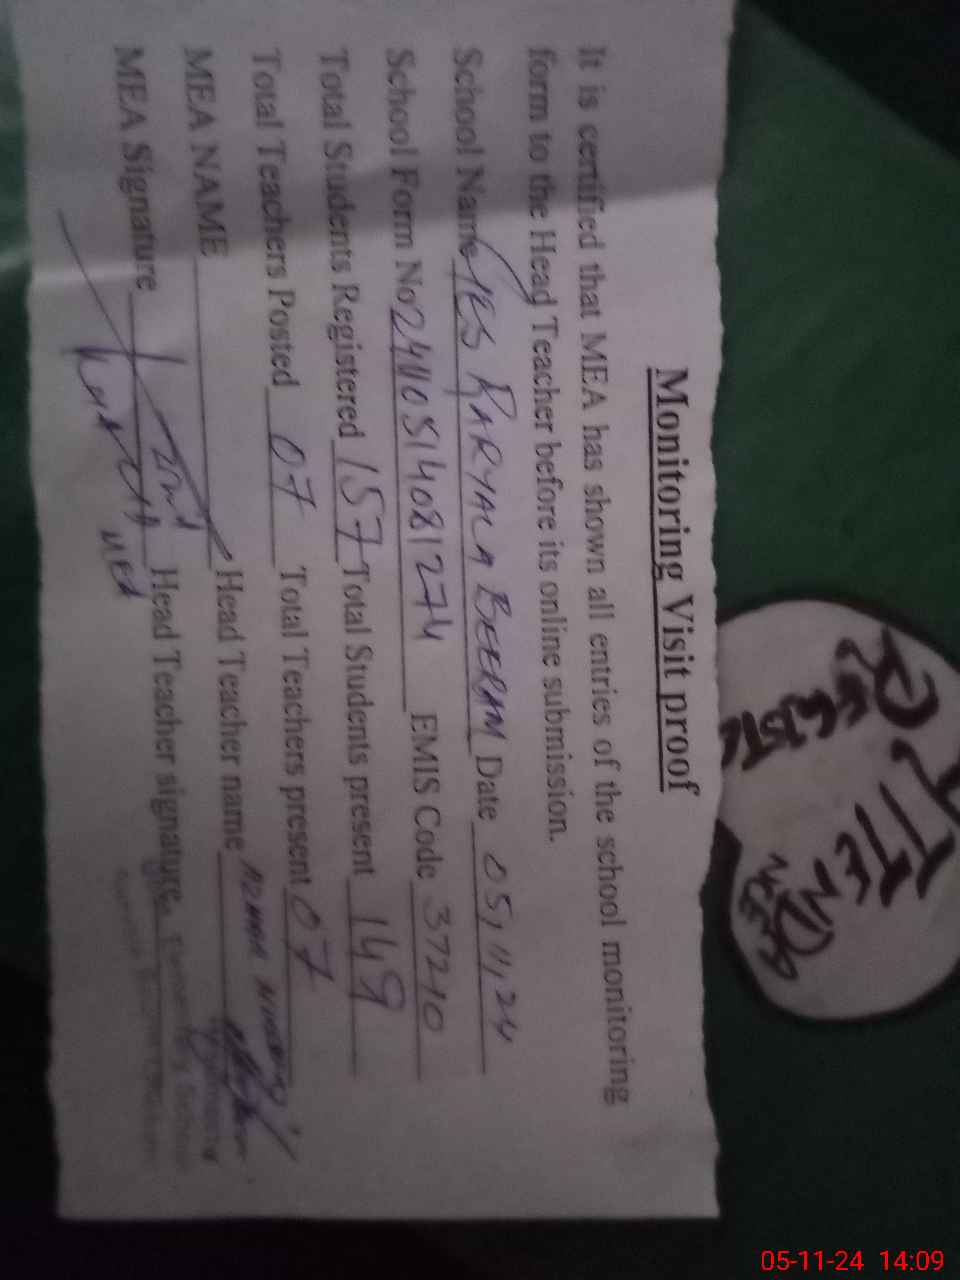 Monitoring Visit proof
It is certified that MEA has shown all entries of the school monitoring
form to the Head Teacher before its online submission.
School Name GES KARYALA BEERAM Date 05,11,24
School Form No EMIS Code 37210
Total Students Registered 157 Total Students present 149
Total Teachers Posted 07 Total Teachers present 07
MEA NAME Head Teacher name
MEA Signature Head Teacher signature.
MEA
ATTENDANCE
REGISTE
05-11-24 14:09